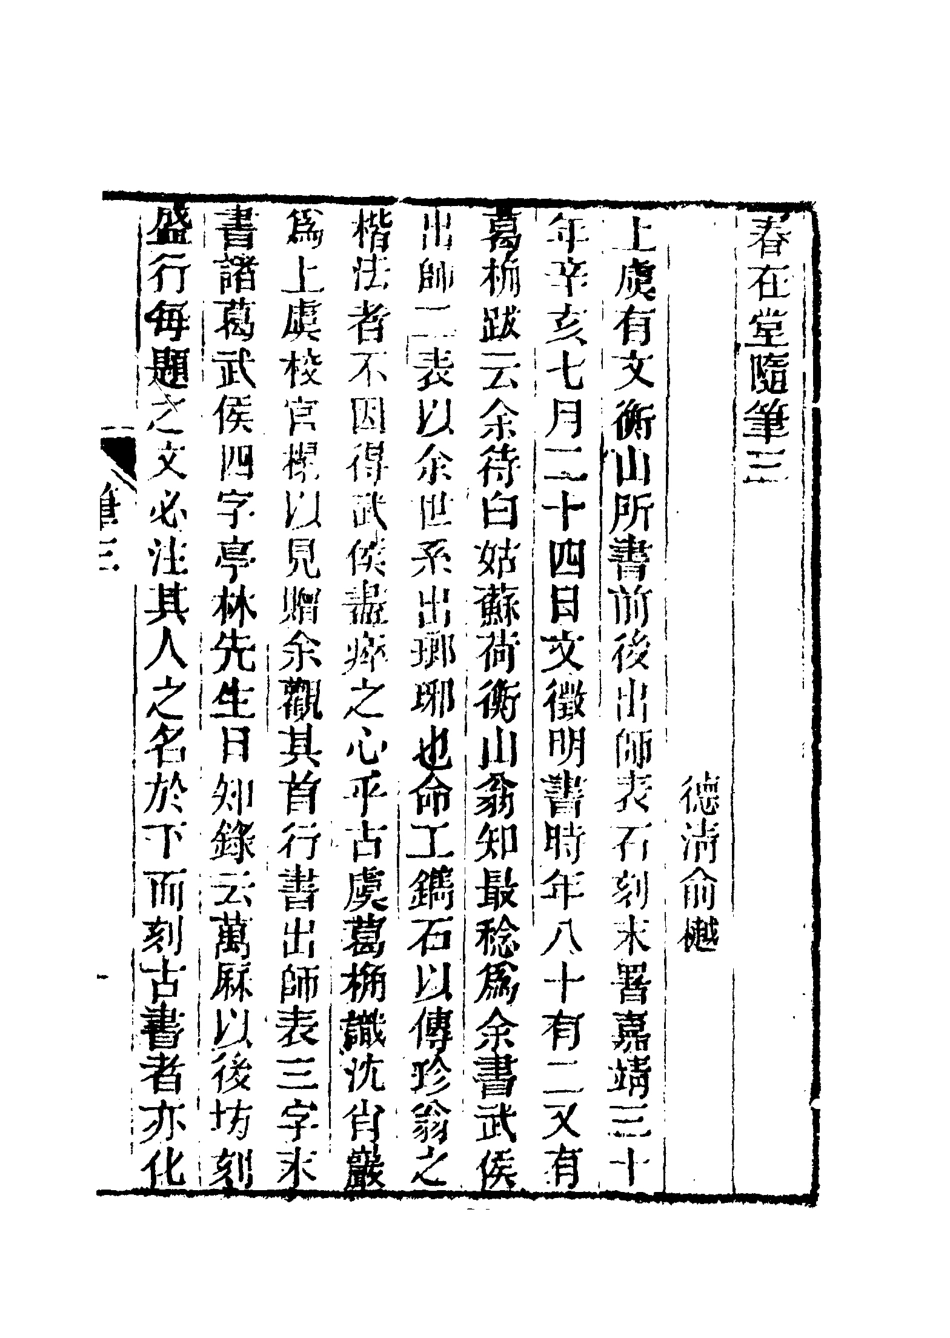 春在堂隨筆三
德清俞樾
上虞有文衡山所書前後出師表石刻末署嘉靖三十
年辛亥七月二十四日文徵明書時年八十有二又有
葛桷跋云余待白姑蘇荷衡山翁知最稔爲余書武侯
出師二表以余世系出瑯琊也命工鐫石以傳珍翁之
楷法者不因得武侯盡瘁之心乎古虞葛桷識沈肖巖
爲上虞校官榻以見贈余觀其首行書出師表三字末
書諸葛武侯四字亭林先生日知錄云萬厤以後坊刻
盛行每題之文必注其人之名於下而刻古書者亦化
筆三
一